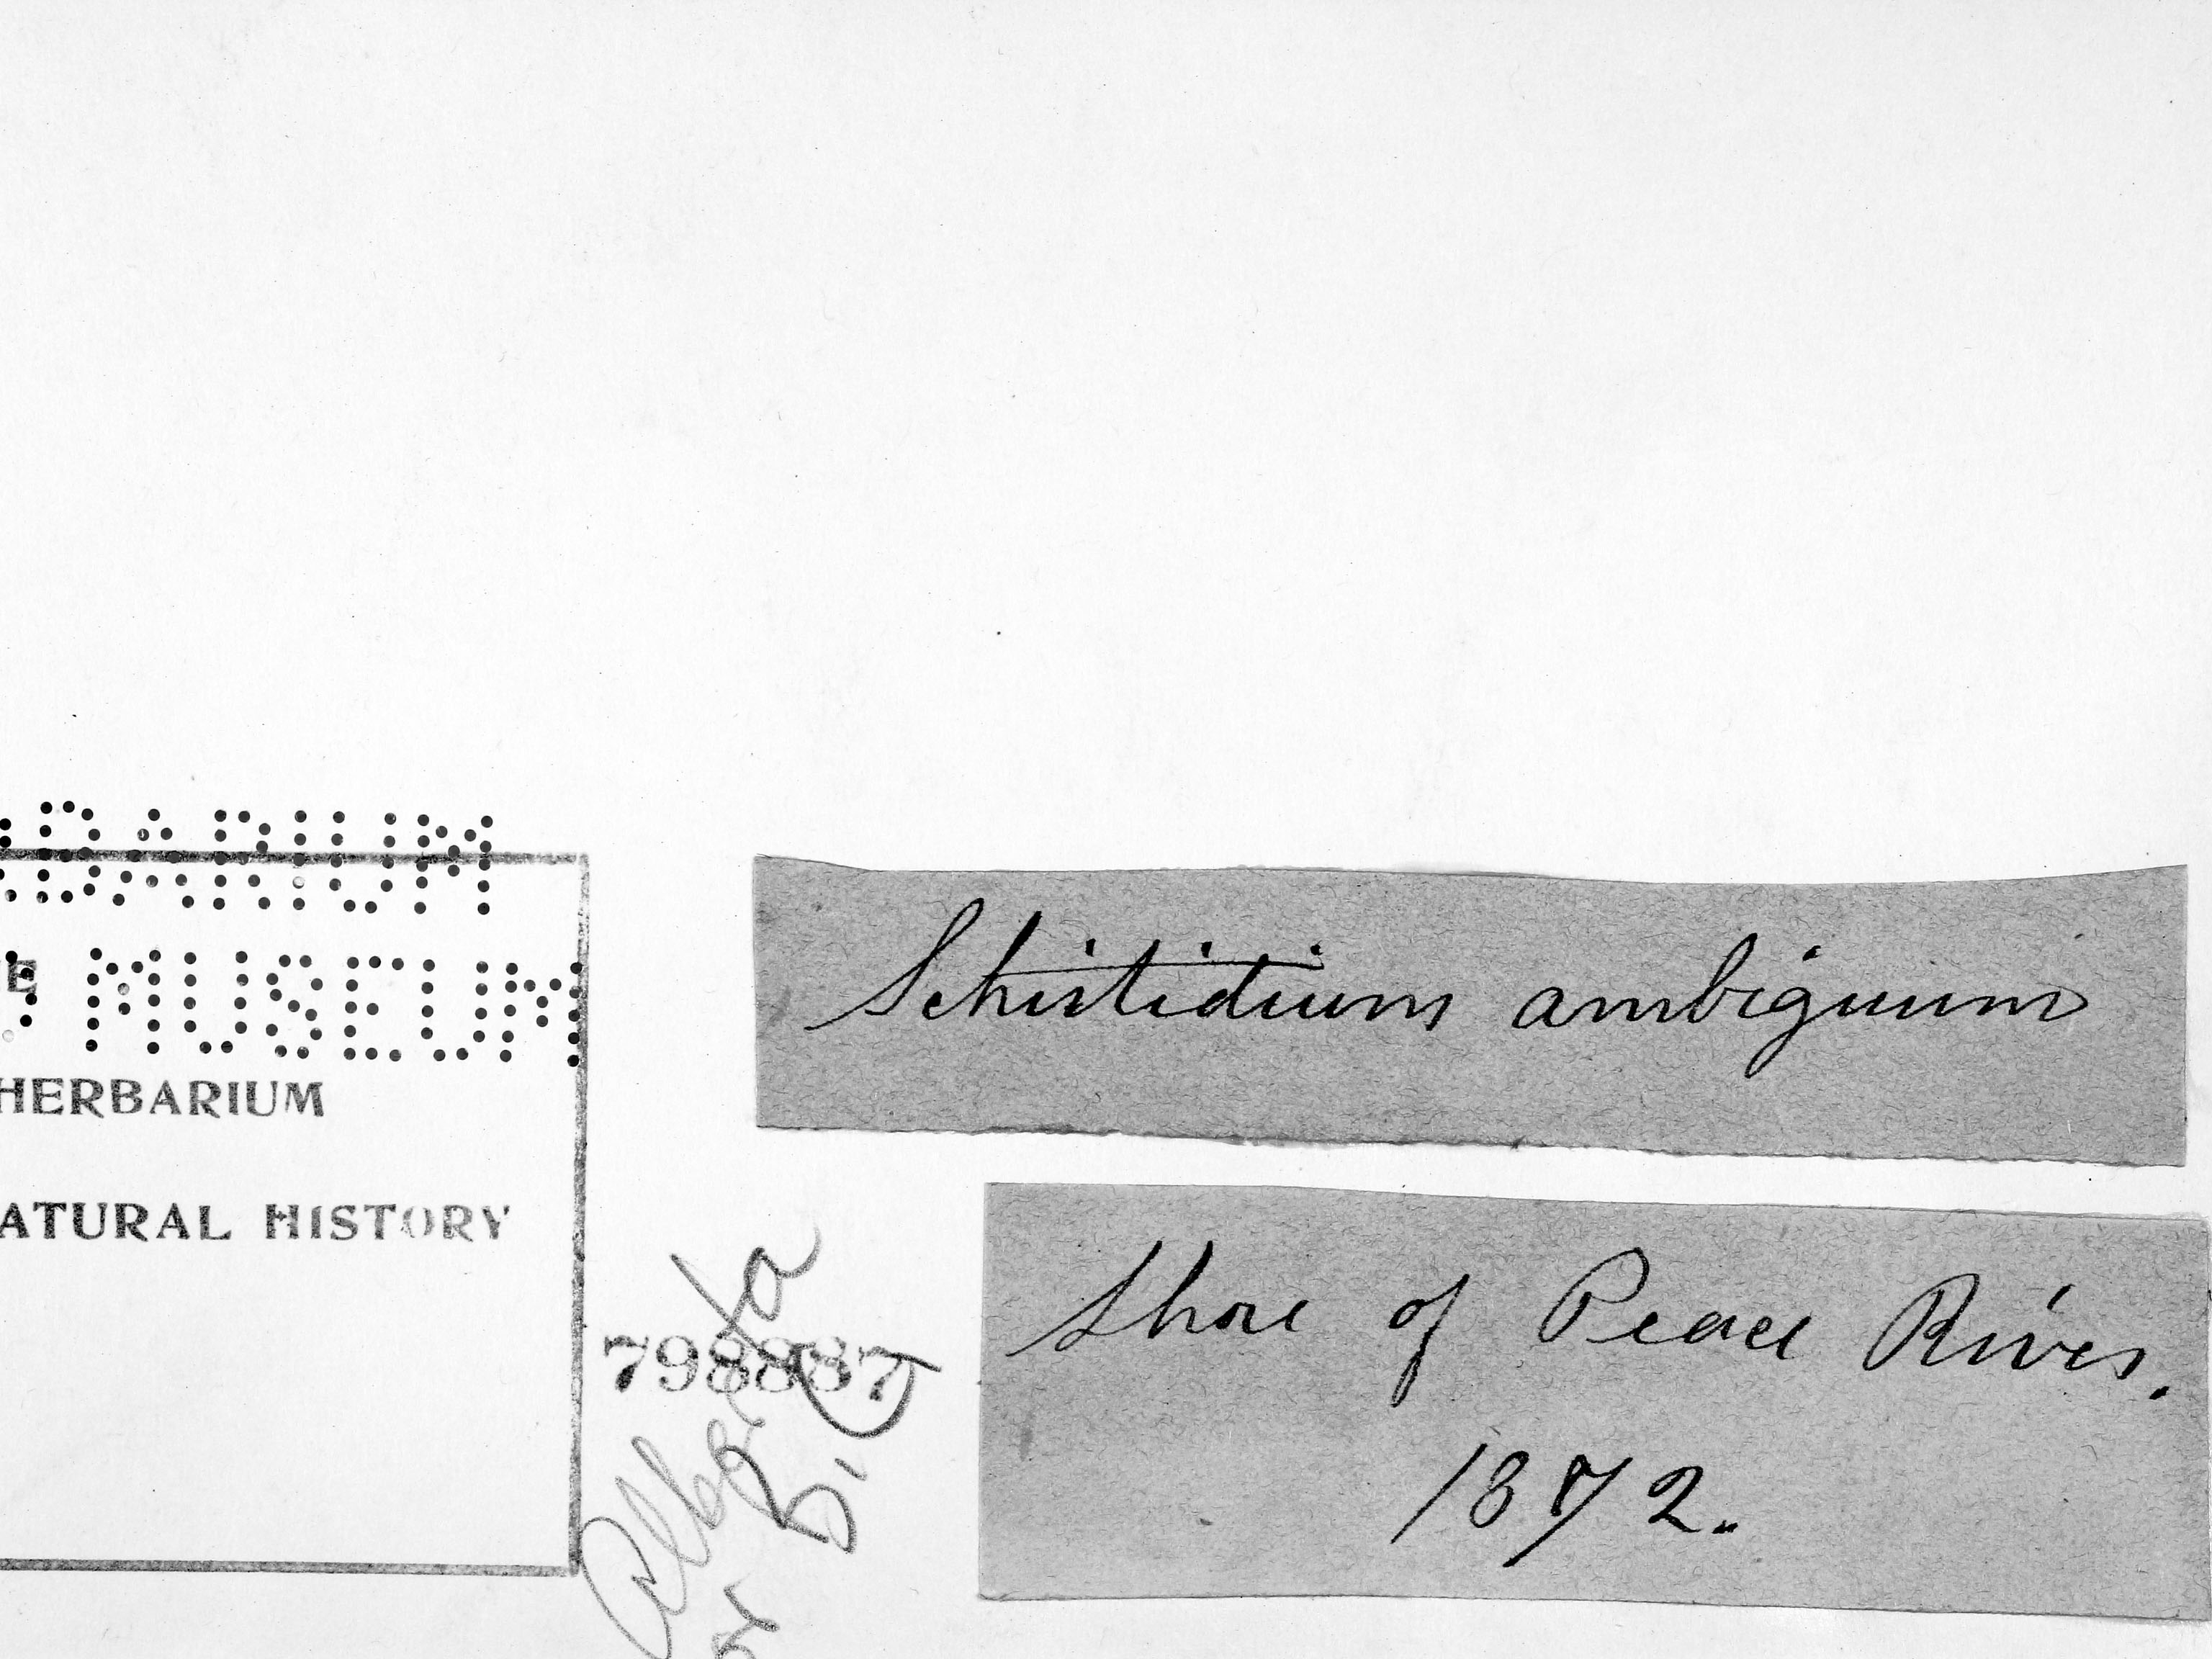 MUSEUM
HERBARIUM
HISTORY
Schistidium ambiguum
Shore of Peace River.
1872.
798887
Alberta
or B.C.